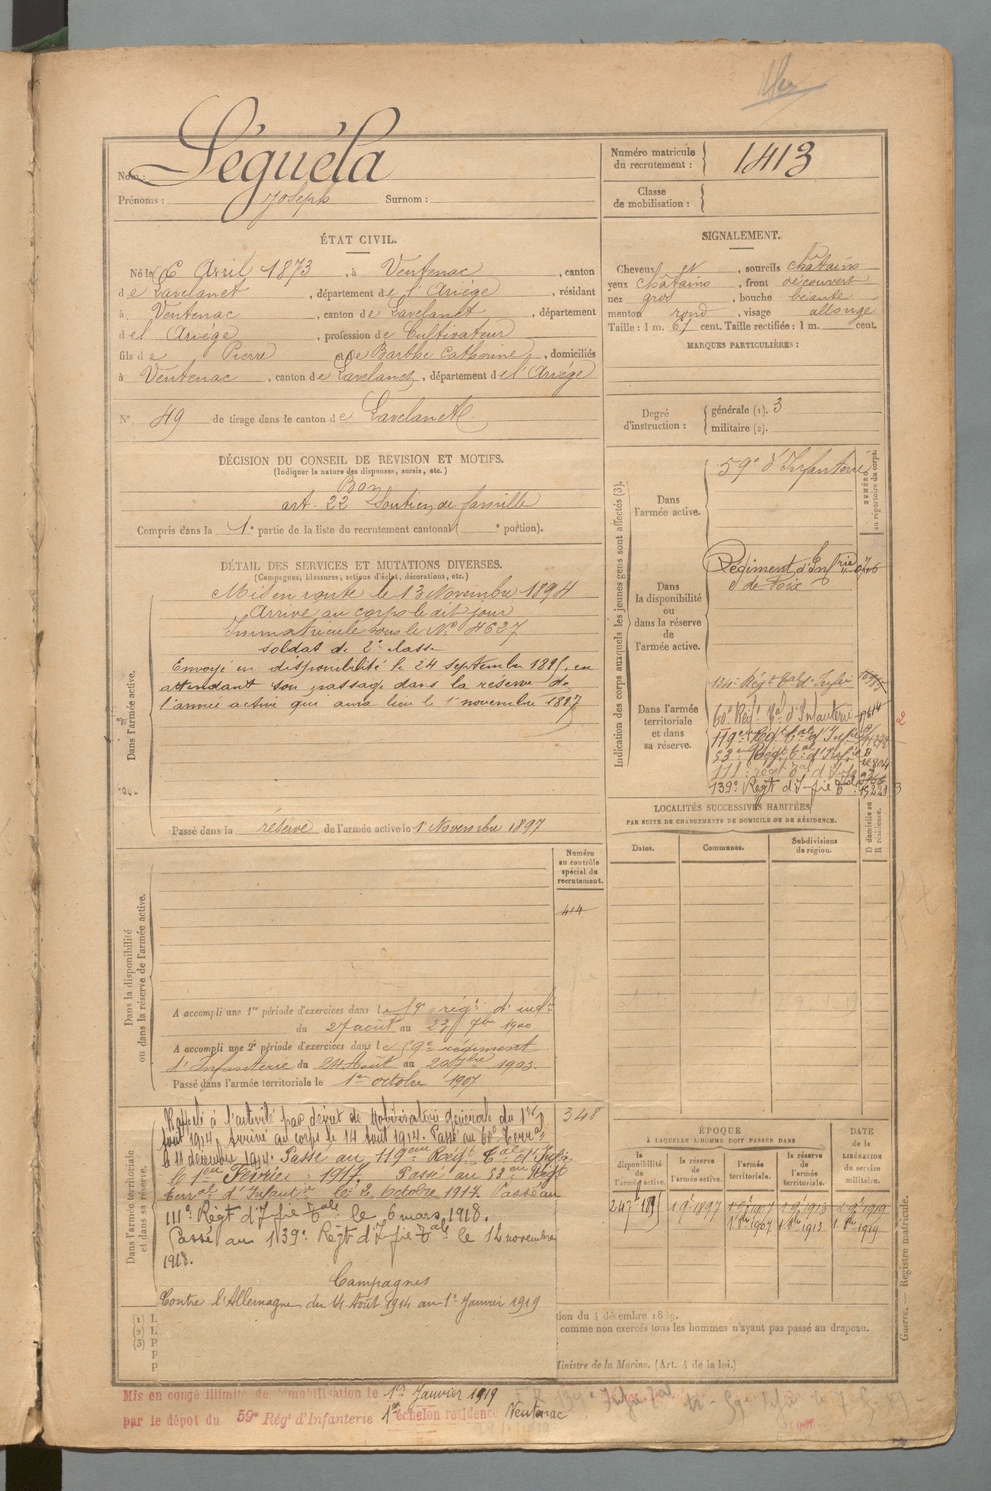 Nom : Séguéla
Prénoms : Joseph Surnom :
Numéro matricule du recrutement : 1413
Classe de mobilisation :
ÉTAT CIVIL.
Né le 6 Avril 1873, à Ventenac, canton
de Lavelanet, département de l'Ariège, résidant
à Ventenac, canton de Lavelanet, département
de l'Ariège, profession de Cultivateur
fils de Pierre et de Barthe Catherine, domiciliés
à Ventenac, canton de Lavelanet, département de l'Ariège
N° 49 de tirage dans le canton de Lavelanet.
SIGNALEMENT.
Cheveux et, sourcils châtains
yeux châtains, front découvert
nez gros, bouche béante
menton rond, visage allongé
Taille : 1 m. 67 cent. Taille rectifiée : 1 m. cent.
MARQUES PARTICULIÈRES :
Degré d'instruction : générale (1). 3
militaire (2).
DÉCISION DU CONSEIL DE REVISION ET MOTIFS.
(Indiquer la nature des dispenses, sursis, etc.)
Bon
art. 22 Soutien de famille
Compris dans la 1e partie de la liste du recrutement cantonal ( e portion).
DÉTAIL DES SERVICES ET MUTATIONS DIVERSES.
(Campagnes, blessures, actions d'éclat, décorations, etc.)
Dans l'armée active.
Mis en route le 13 Novembre 1894
Arrivé au corps le dit jour
Immatriculé sous le N° 4627
soldat de 2e classe
Envoyé en disponibilité le 24 septembre 1895, en
attendant son passage dans la réserve de
l'armée active qui aura lieu le 1er novembre 1897
Passé dans la réserve de l'armée active le 1er Novembre 1897
Indication des corps auxquels les jeunes gens sont affectés (3).
NUMÉRO au répertoire du corps.
Dans l'armée active.
59e d'Infanterie
Dans la disponibilité ou dans la réserve de l'armée active.
Régiment d'Infrie
de Foix
Dans l'armée territoriale et dans sa réserve.
134e Régt tal d'Infie
60e Régt Tal d'Infanterie
119eme Régt tal d'Infie
53eme Régt tal d'Infie
111e régt tal d'Infie
139e Régt d'Infie tale
LOCALITÉS SUCCESSIVES HABITÉES
PAR SUITE DE CHANGEMENTS DE DOMICILE OU DE RÉSIDENCE.
Dates. Communes. Subdivisions de région.
D domicile ou R résidence.
Numéro au contrôle spécial du recrutement.
414
Dans la disponibilité ou dans la réserve de l'armée active.
A accompli une 1re période d'exercices dans le 59e régt d'infie
du 27 août au 23 7bre 1900
A accompli une 2e période d'exercices dans le 59e régiment
d'Infanterie du 24 Août au 20 7bre 1903.
Passé dans l'armée territoriale le 1er octobre 1907
Dans l'armée territoriale et dans sa réserve.
348
Rappelé à l'activité par décret de Mobilisation Générale du 1er
Août 1914. Arrivé au corps le 14 Août 1914. Passé au 60e Terral
le 11 décembre 1914. Passé au 119eme Régt Tal d'Infie
le 1er Février 1917. Passé au 53eme Régt
terral d'Infanie le 2 Octobre 1917. Passé au
111e Régt d'Infie tale le 6 mars 1918.
Passé au 139e Régt d'Infie tale le 12 novembre
1918.
Campagnes
Contre l'Allemagne du 14 Août 1914 au 1er Janvier 1919
ÉPOQUE
À LAQUELLE L'HOMME DOIT PASSER DANS
la disponibilité de l'armée active. la réserve de l'armée active. l'armée territoriale. la réserve de l'armée territoriale.
DATE de la LIBÉRATION du service militaire.
24 7e 1895 1 9e 1897 1 9e 1907 1 9e 1913 1 9e 1919
1 8bre 1907 1 8bre 1913 1 8bre 1919
tion du 4 décembre 18
comme non exercés tous les hommes n'ayant pas passé au drapeau.
Ministre de la Marine. (Art. 4 de la loi.)
Guerre. — Registre matricule.
Mis en congé illimité de démobilisation le 1er Janvier 1919
par le dépot du 59e Régt d'Infanterie 1er échelon residence Ventenac